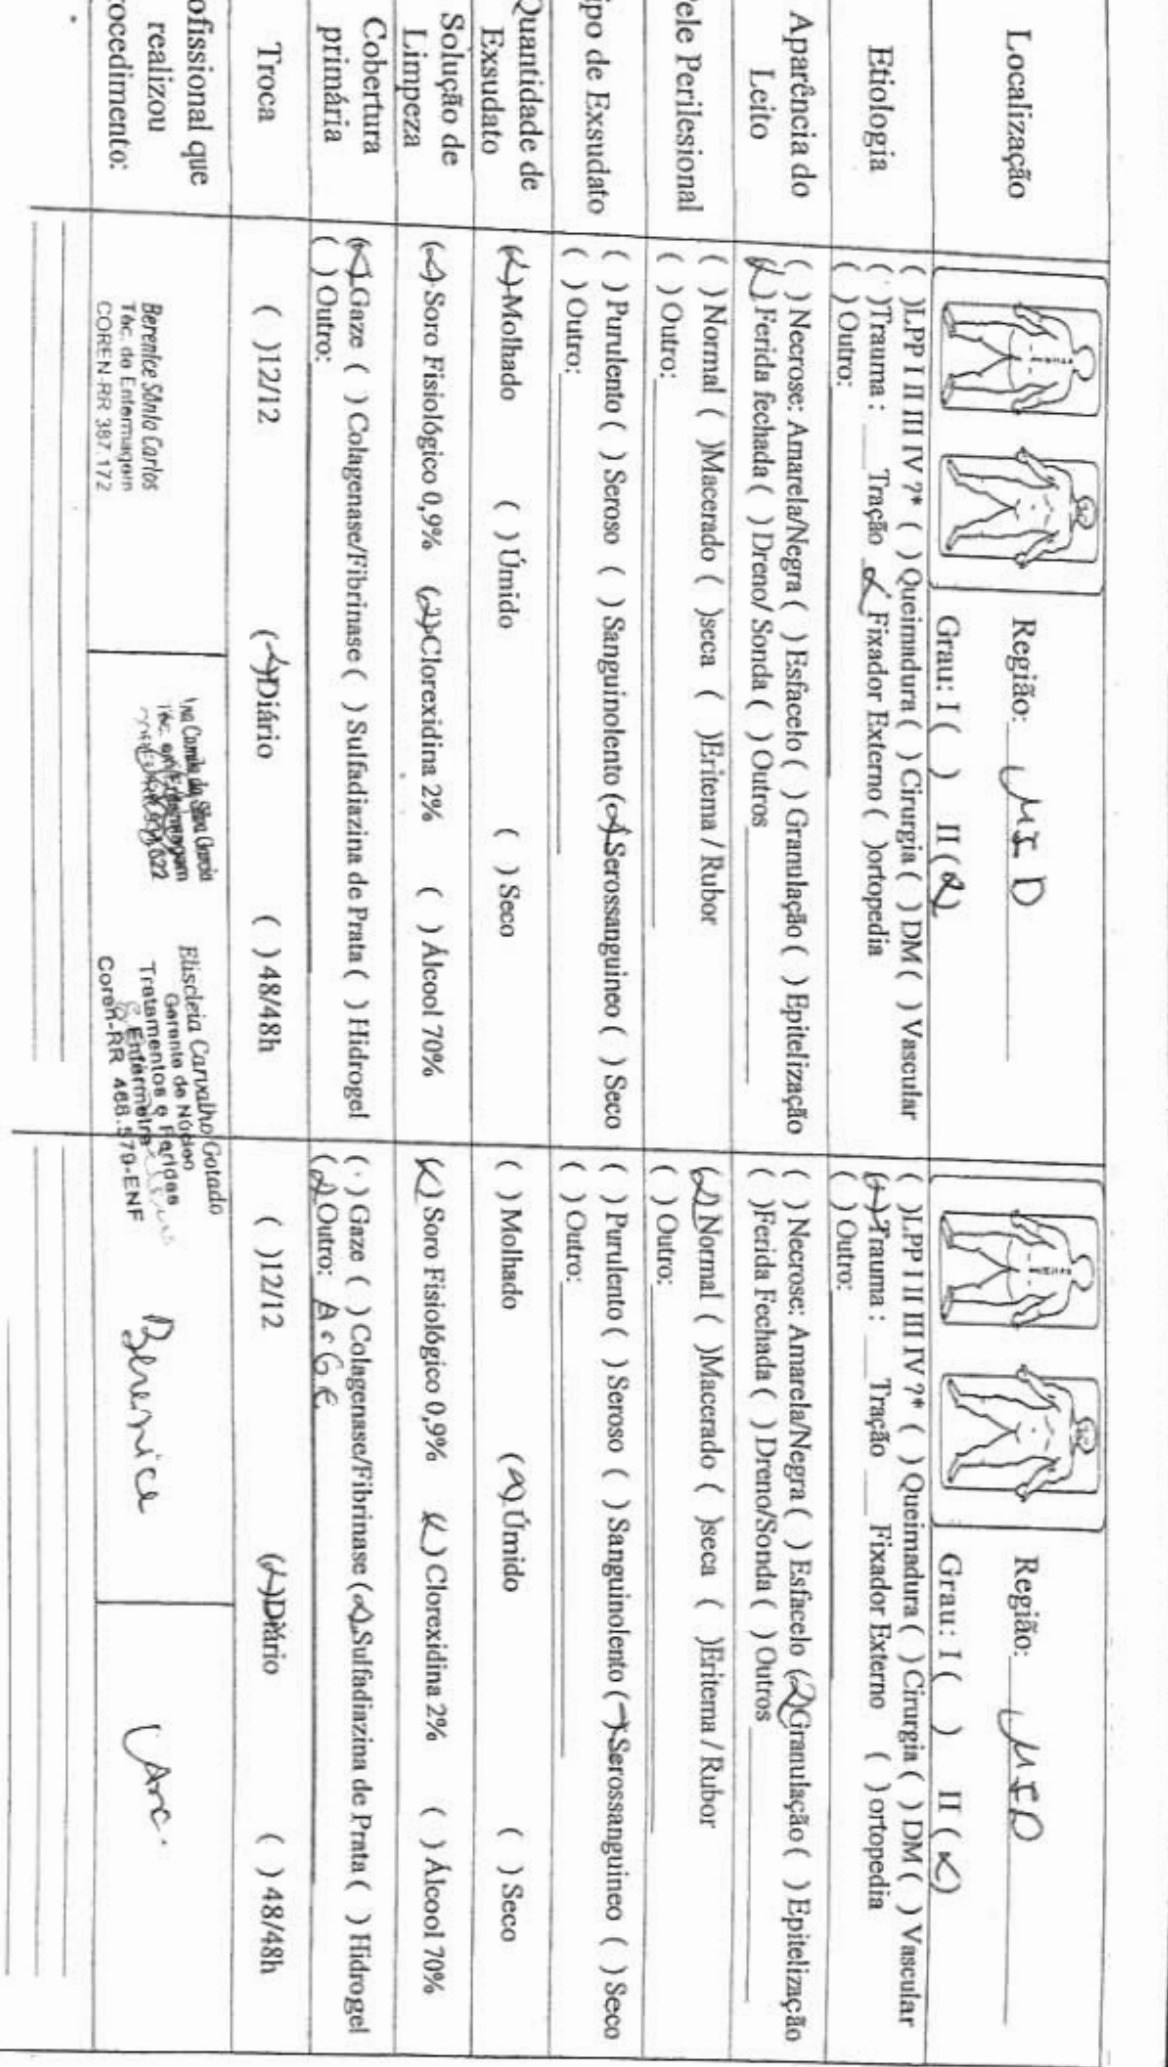 Localização
Região: MID
Grau: I ( ) II (x)
Região: MID
Grau: I ( ) II (x)
Etiologia
( )LPP I II III IV ?* ( ) Queimadura ( ) Cirurgia ( ) DM ( ) Vascular
( )Trauma : ___ Tração x Fixador Externo ( )ortopedia
( ) Outro:
( )LPP I II III IV ?* ( ) Queimadura ( ) Cirurgia ( ) DM ( ) Vascular
(x)Trauma : ___ Tração ___ Fixador Externo ( ) ortopedia
( ) Outro:
Aparência do
Leito
( ) Necrose: Amarela/Negra ( ) Esfacelo ( ) Granulação ( ) Epitelização
(x) Ferida fechada ( ) Dreno/ Sonda ( ) Outros
( ) Necrose: Amarela/Negra ( ) Esfacelo (x)Granulação ( ) Epitelização
( )Ferida Fechada ( ) Dreno/Sonda ( ) Outros
ele Perilesional
( ) Normal ( )Macerado ( )seca ( )Eritema / Rubor
( ) Outro:
(x)Normal ( )Macerado ( )seca ( )Eritema / Rubor
( ) Outro:
ipo de Exsudato
( ) Purulento ( ) Seroso ( ) Sanguinolento (x)Serossanguineo ( ) Seco
( ) Outro:
( ) Purulento ( ) Seroso ( ) Sanguinolento (x)Serossanguineo ( ) Seco
( ) Outro:
Quantidade de
Exsudato
(x) Molhado ( ) Úmido ( ) Seco
( ) Molhado (x) Úmido ( ) Seco
Solução de
Limpeza
(x) Soro Fisiológico 0,9% (x)Clorexidina 2% ( ) Álcool 70%
(x) Soro Fisiológico 0,9% (x) Clorexidina 2% ( ) Álcool 70%
Cobertura
primária
(x) Gaze ( ) Colagenase/Fibrinase ( ) Sulfadiazina de Prata ( ) Hidrogel
( ) Outro:
( ) Gaze ( ) Colagenase/Fibrinase (x)Sulfadiazina de Prata ( ) Hidrogel
(x) Outro: A.G.E
Troca
( )12/12 (x)Diário ( ) 48/48h
( )12/12 (x)Diário ( ) 48/48h
ofissional que
realizou
ocedimento:
Berenice Sônia Carlos
Téc. de Enfermagem
COREN-RR 387.172
Ana Camila da Silva Garcia
Téc. em Enfermagem
Eliscleia Carvalho Gotado
Gerente do Núcleo
Tratamentos e Feridas
Enfermeira
Coren-RR 468.579-ENF
Berenice